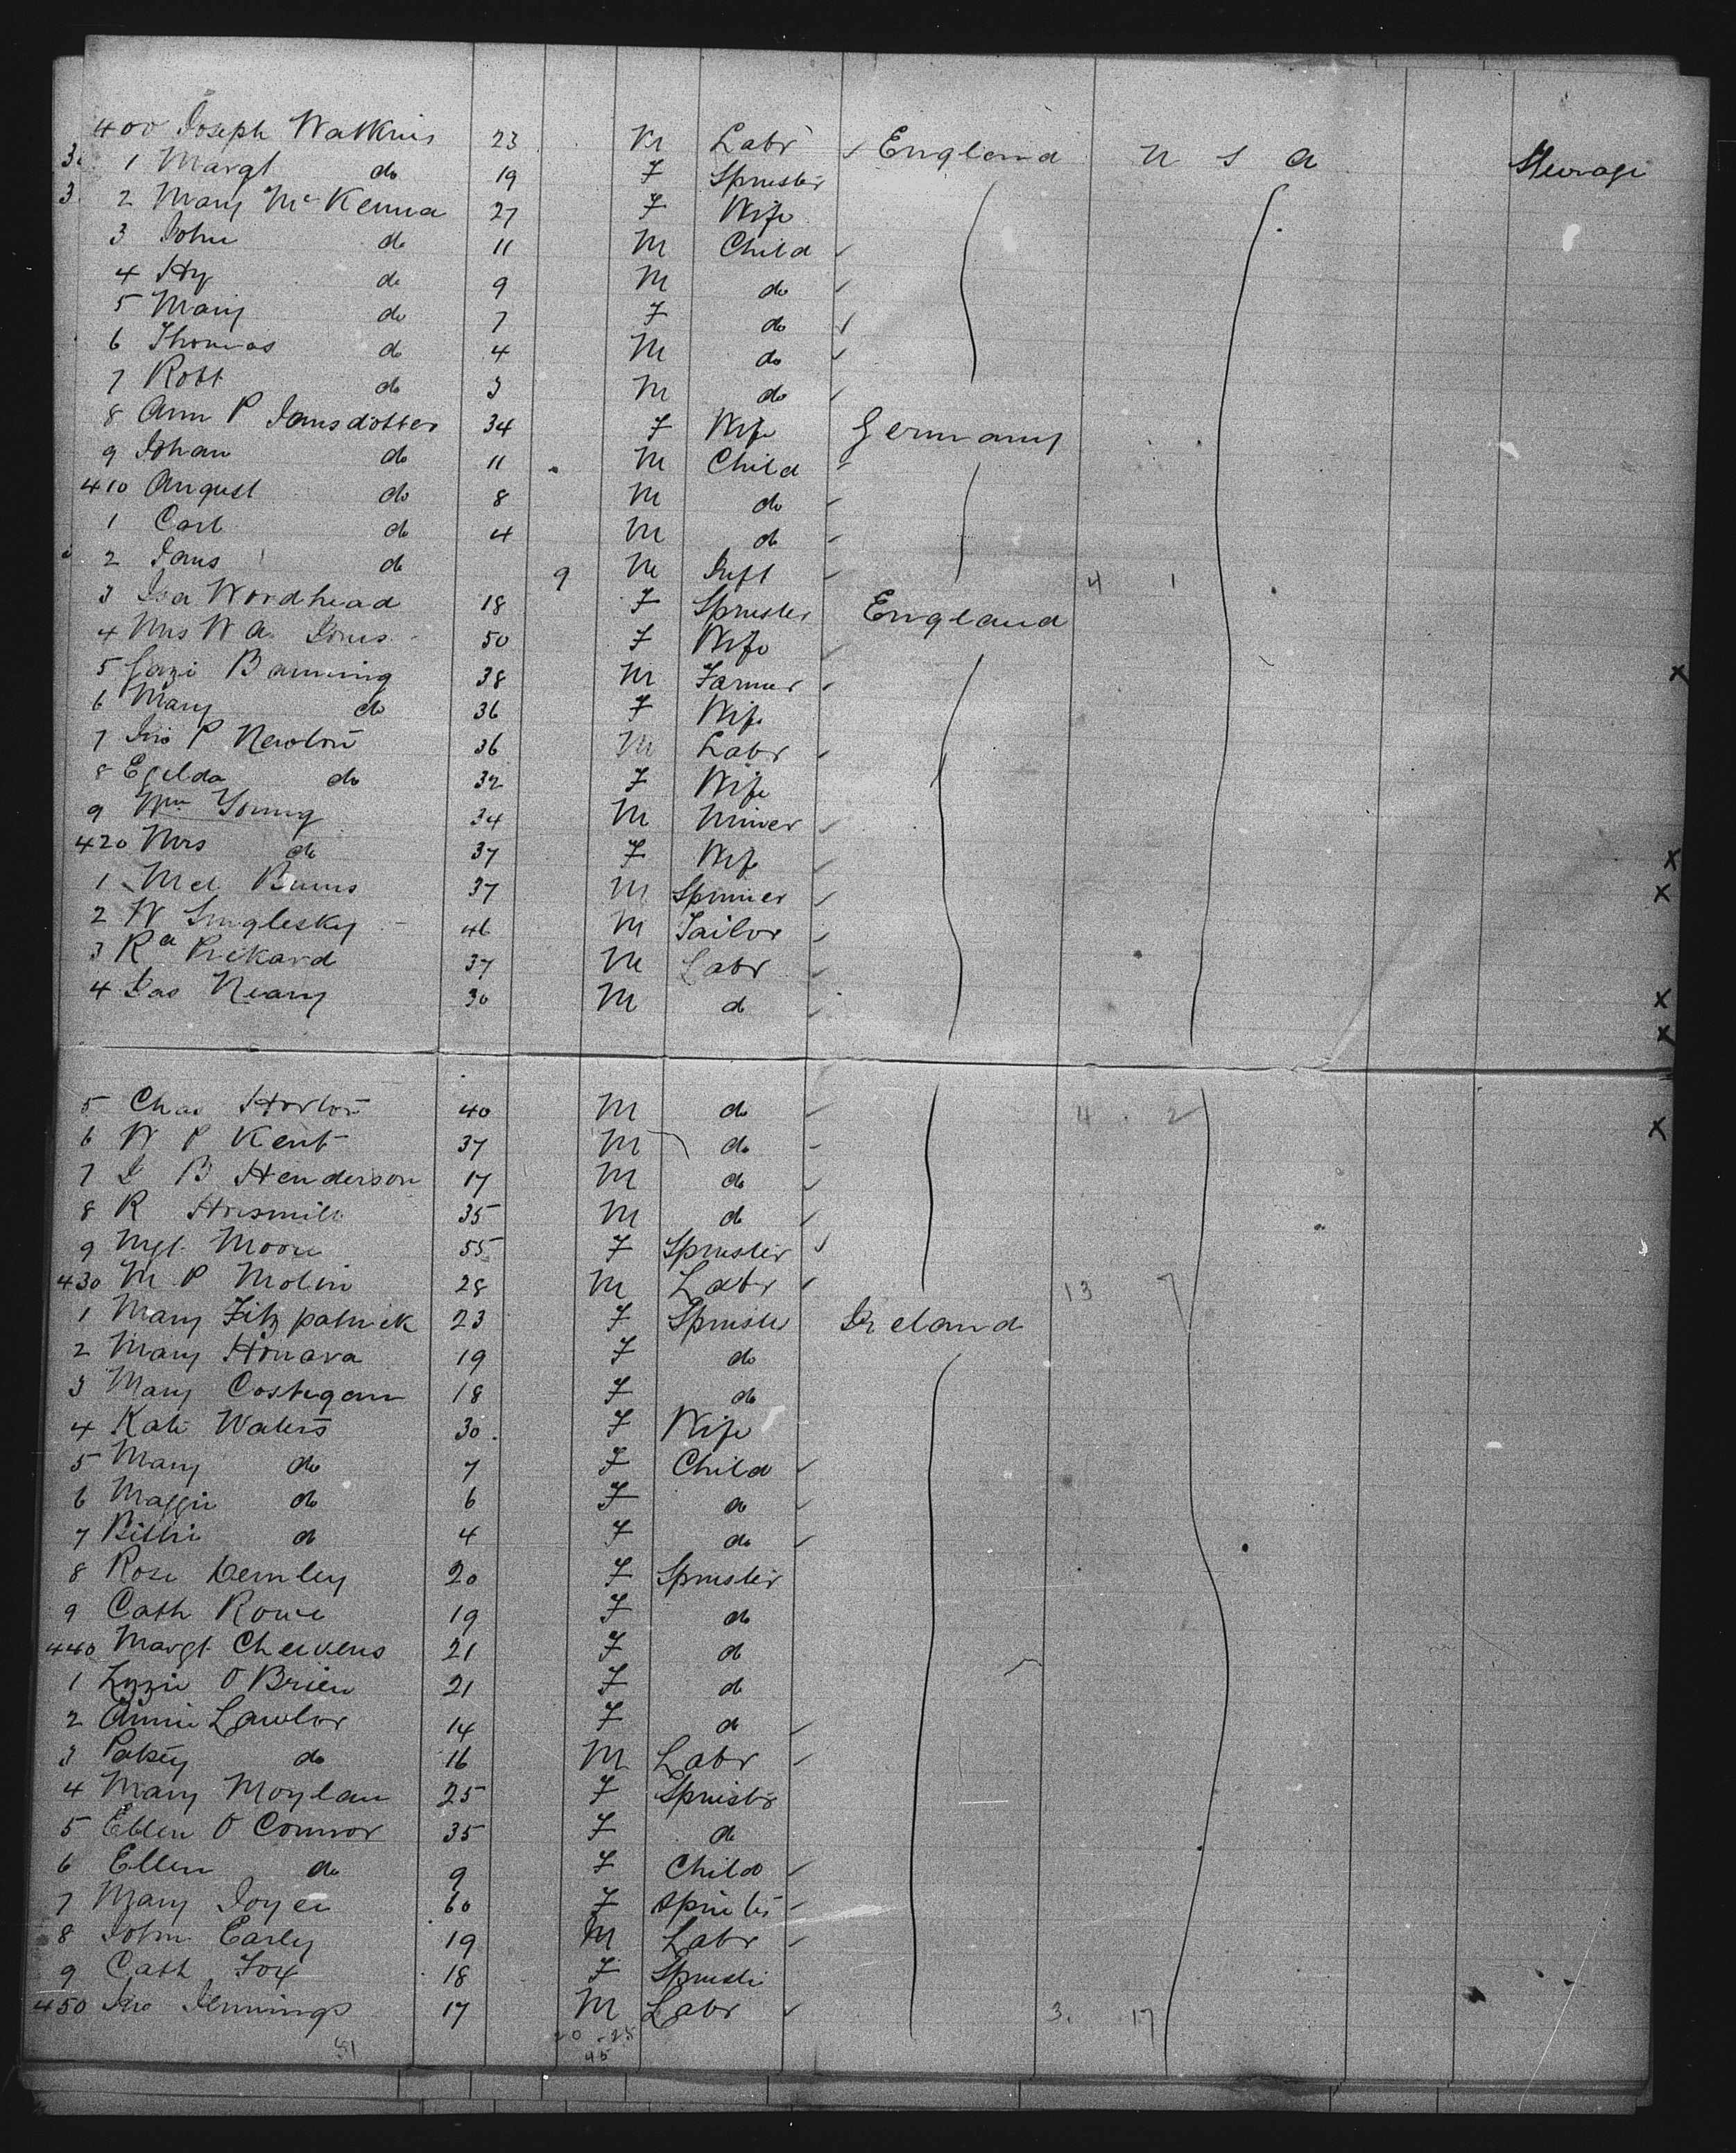 400 Joseph Watkins 23 M Labr England U S A Steerage
1 Margt do 19 F Spinster
2 Mary McKenna 27 F Wife
3 John do 11 M Child
4 Hy do 9 M do
5 Mary do 7 F do
6 Thomas do 4 M do
7 Robt do 3 M do
8 Ann P Jansdotter 34 F Wife Germany
9 Johan do 11 M Child
410 August do 8 M do
1 Carl do 4 M do
2 Jans do 9 M Inft 4 1
3 Isa Woodhead 18 F Spinster England
4 Mrs W A 50 F Wife
5 Banning 38 M Farmer X
6 Mary do 36 F Wife
7 Jno P Newton 36 M Labr
8 do 32 F Wife
9 Wm Young 34 M Miner
420 Mrs do 37 F Wife X
1 Burns 37 M Spinner X
2 W 46 M Tailor
3 Rd Prickard 37 M Labr
4 Jas Neary 30 M d X
X
5 Chas Horton 40 M do 4 2
6 W P Kent 37 M do X
7 J B Henderson 17 M do
8 R 35 M do
9 Mgt Moore 55 F Spinster
430 M P Molin 28 M Labr 13 7
1 Mary Fitzpatrick 23 F Spinster Ireland
2 Mary 19 F do
3 Mary Costigan 18 F do
4 Kate Waters 30 F Wife
5 Mary do 7 F Child
6 Maggie do 6 F do
7 do 4 F do
8 Rose 20 F Spinster
9 Cath Rowe 19 F do
440 Margt 21 F do
1 Lizzie O Brien 21 F do
2 Annie Lawlor 14 F do
3 Patsey do 16 M Labr
4 Mary Moylan 25 F Spinstr
5 Ellen O Connor 35 F do
6 Ellen do 9 F Child
7 Mary Joyce 60 F Spinster
8 John Early 19 M Labr
9 Cath Fox 18 F Spinster
450 Jno Jennings 17 M Labr 3. 17